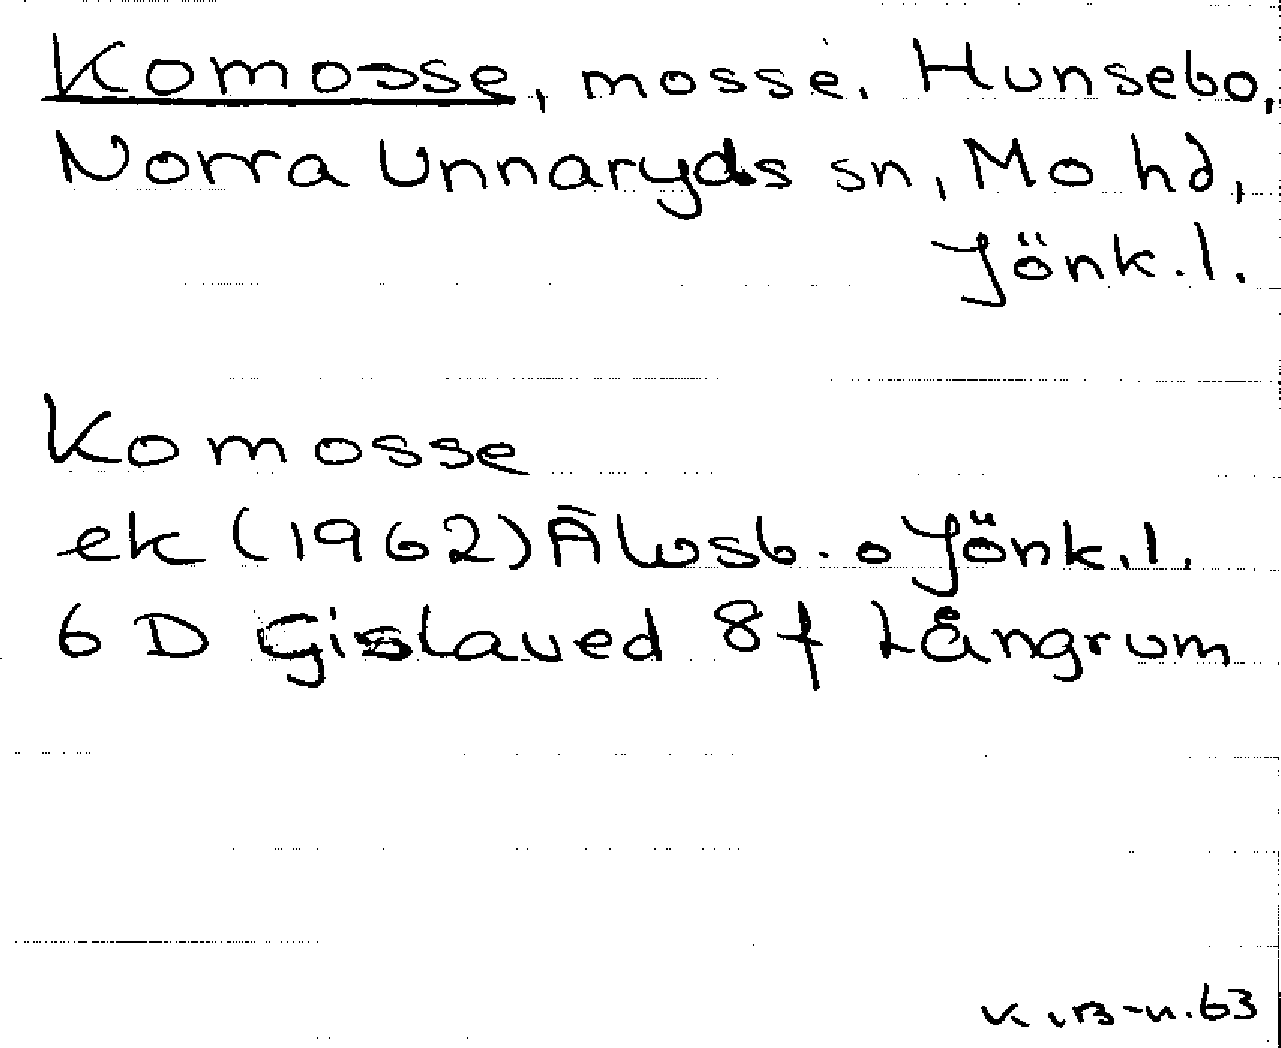 Komosse, mosse. Hunsebo,
Norra Unnaryds sn, Mo hd,
Jönk.l.
Komosse
ek (1962) Älvsb. o Jönk.l.
6 D Gislaved 8f Långrum
63